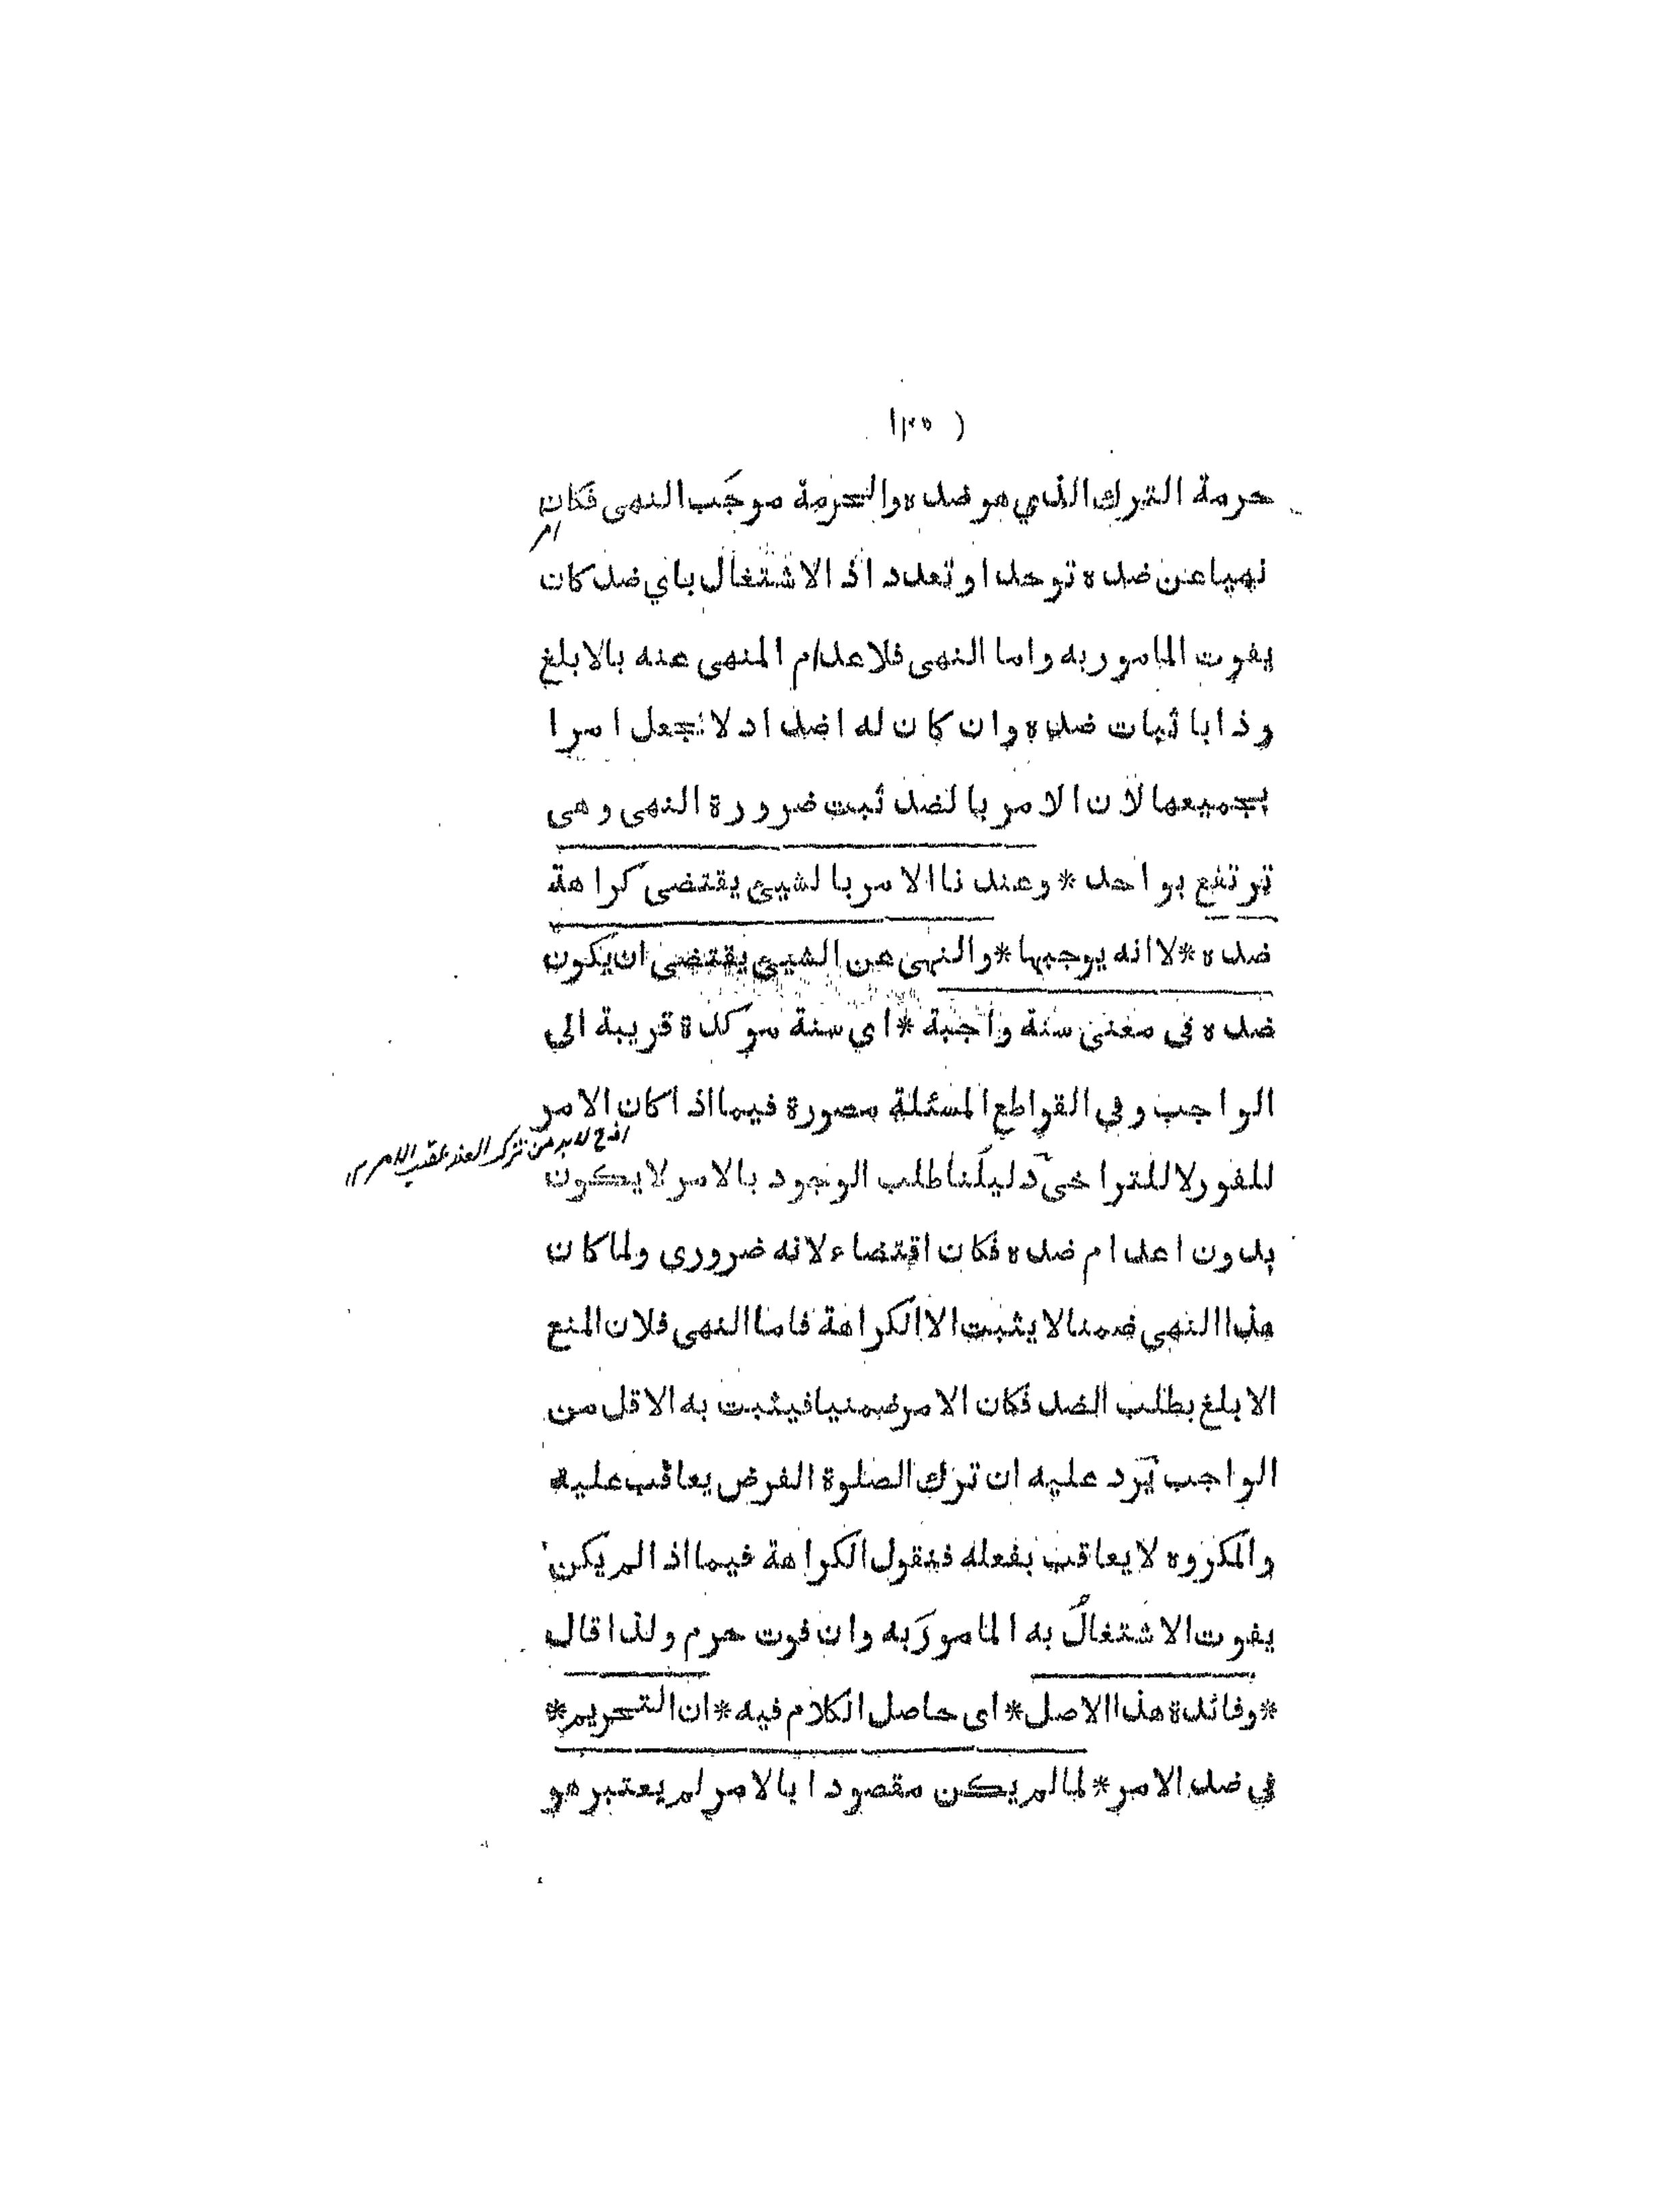 حرمة الترك الذي هو ضده والحرمة موجب النهى فكان
نهيا عن ضده توحد او تعدد اذ الاشتغال باي ضد كان
يفوت المامور به واما النهى فلاعدام المنهى عنه بالابلغ
وذا باثبات ضده وان كان له اضداد لا نجعل امرا
بجميعها لان الامر بالضد ثبت ضرورة النهى وهى
ترتفع بواحد * وعندنا الامر بالشيئ يقتضى كراهة
ضده * لا انه يوجبها * والنهى عن الشيئ يقتضى ان يكون
ضده فى معنى سنة واجبة * اي سنة موكدة قريبة الى
الواجب وفى القواطع المسئلة مصورة فيما اذا كان الامر
لابد من ترك الضد عقيب الامر
للفور لا للتراخى دليلنا طلب الوجود بالامر لا يكون
بدون اعدام ضده فكان اقتضاء لانه ضرورى ولما كان
هذا النهى ضمنا لا يثبت الا الكراهة فاما النهى فلان المنع
الابلغ بطلب الضد فكان الامر ضمنيا فيثبت به الاقل من
الواجب يرد عليه ان ترك الصلوة الفرض يعاقب عليه
والمكروه لا يعاقب بفعله فنقول الكراهة فيما اذا لم يكن
يفوت الاشتغال به المامور به وان فوت حرم ولذا قال
* وفائدة هذا الاصل * اى حاصل الكلام فيه * ان التحريم *
في ضد الامر * لما لم يكن مقصودا بالامر لم يعتبر هو